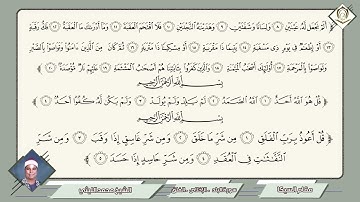 أَلَمْ نَجْعَل لَّهُۥ عَيْنَيْنِ ٨ وَلِسَانًا وَشَفَتَيْنِ ٩ وَهَدَيْنَٰهُ ٱلنَّجْدَيْنِ ١٠ فَلَا ٱقْتَحَمَ ٱلْعَقَبَةَ ١١ وَمَآ أَدْرَىٰكَ مَا ٱلْعَقَبَةُ ١٢ فَكُّ رَقَبَةٍ ١٣
أَوْ إِطْعَٰمٌ فِى يَوْمٍ ذِى مَسْغَبَةٍ ١٤ يَتِيمًا ذَا مَقْرَبَةٍ ١٥ أَوْ مِسْكِينًا ذَا مَتْرَبَةٍ ١٦ ثُمَّ كَانَ مِنَ ٱلَّذِينَ ءَامَنُوا۟ وَتَوَاصَوْا۟ بِٱلصَّبْرِ
وَتَوَاصَوْا۟ بِٱلْمَرْحَمَةِ ١٧ أُو۟لَٰٓئِكَ أَصْحَٰبُ ٱلْمَيْمَنَةِ ١٨ وَٱلَّذِينَ كَفَرُوا۟ بِـَٔايَٰتِنَا هُمْ أَصْحَٰبُ ٱلْمَشْـَٔمَةِ ١٩ عَلَيْهِمْ نَارٌ مُّؤْصَدَةٌۢ ٢٠
بِسْمِ ٱللَّهِ ٱلرَّحْمَٰنِ ٱلرَّحِيمِ
قُلْ هُوَ ٱللَّهُ أَحَدٌ ١ ٱللَّهُ ٱلصَّمَدُ ٢ لَمْ يَلِدْ وَلَمْ يُولَدْ ٣ وَلَمْ يَكُن لَّهُۥ كُفُوًا أَحَدٌۢ ٤
بِسْمِ ٱللَّهِ ٱلرَّحْمَٰنِ ٱلرَّحِيمِ
قُلْ أَعُوذُ بِرَبِّ ٱلْفَلَقِ ١ مِن شَرِّ مَا خَلَقَ ٢ وَمِن شَرِّ غَاسِقٍ إِذَا وَقَبَ ٣ وَمِن شَرِّ
ٱلنَّفَّٰثَٰتِ فِى ٱلْعُقَدِ ٤ وَمِن شَرِّ حَاسِدٍ إِذَا حَسَدَ ٥
الشيخ محمد الليثي
سورة البلد - الإخلاص - الفلق